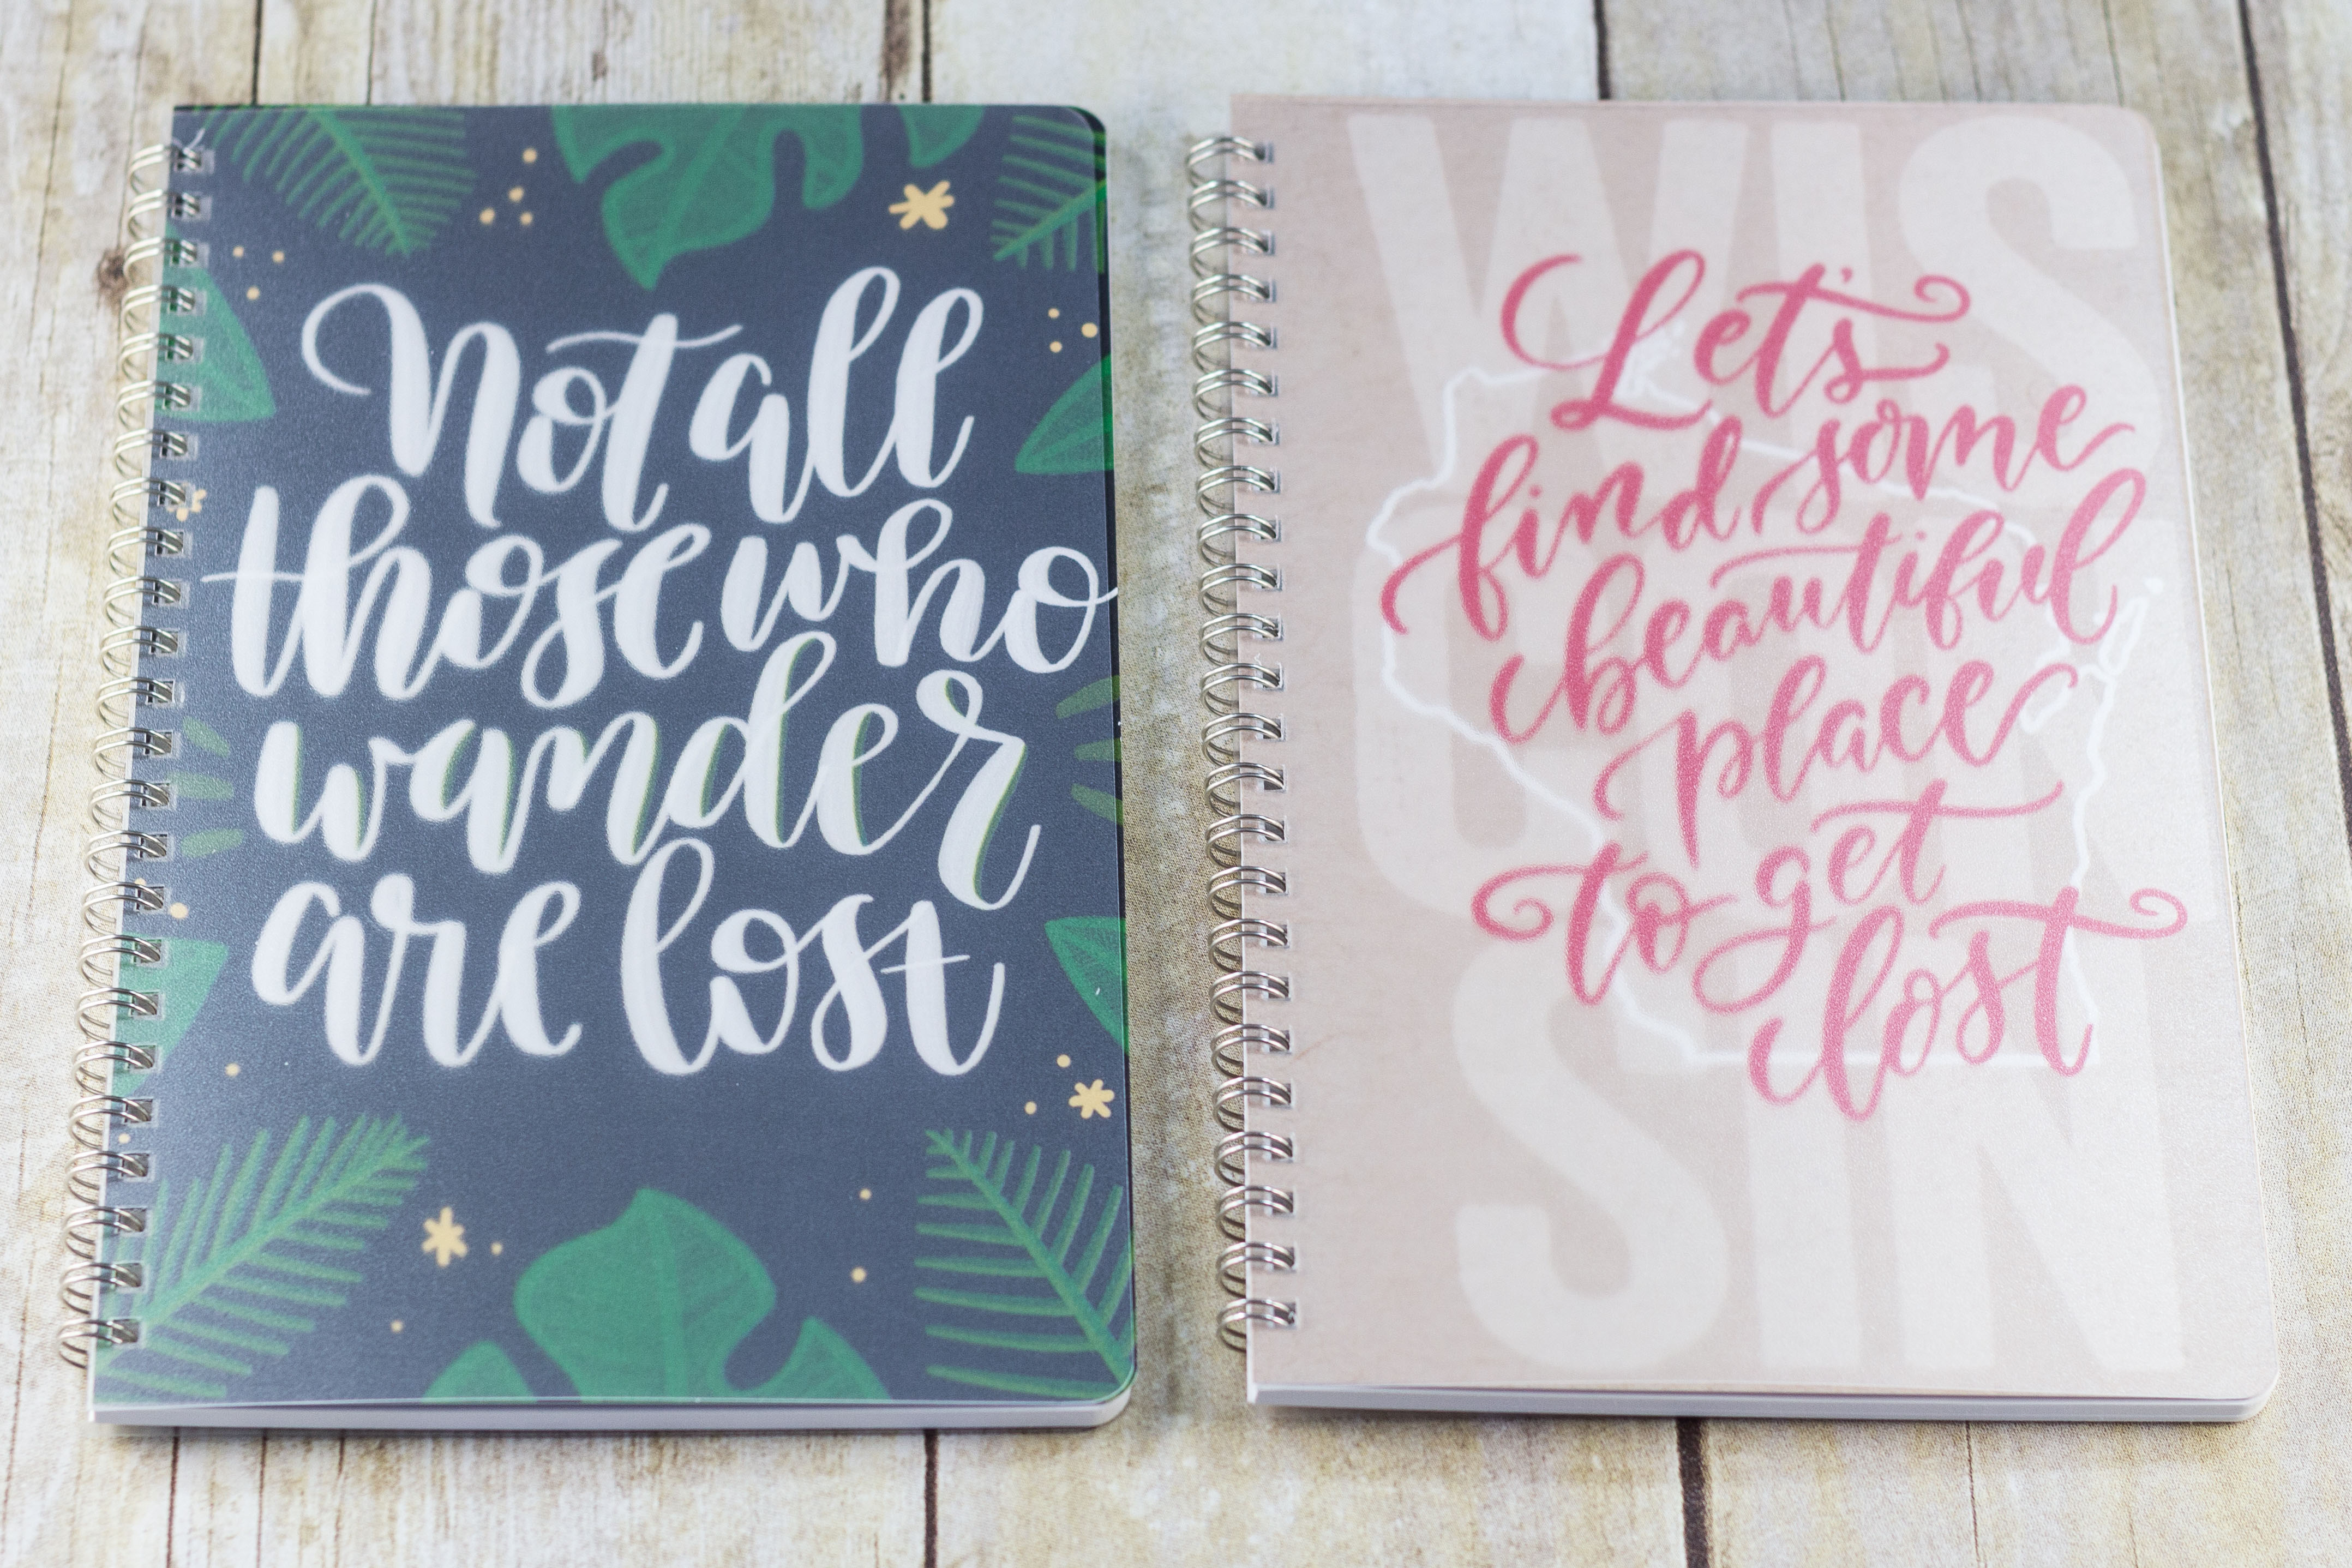 Not all
those who
wander
are lost
WIS
CON
SIN
Let's
find some
beautiful
place
to get
lost